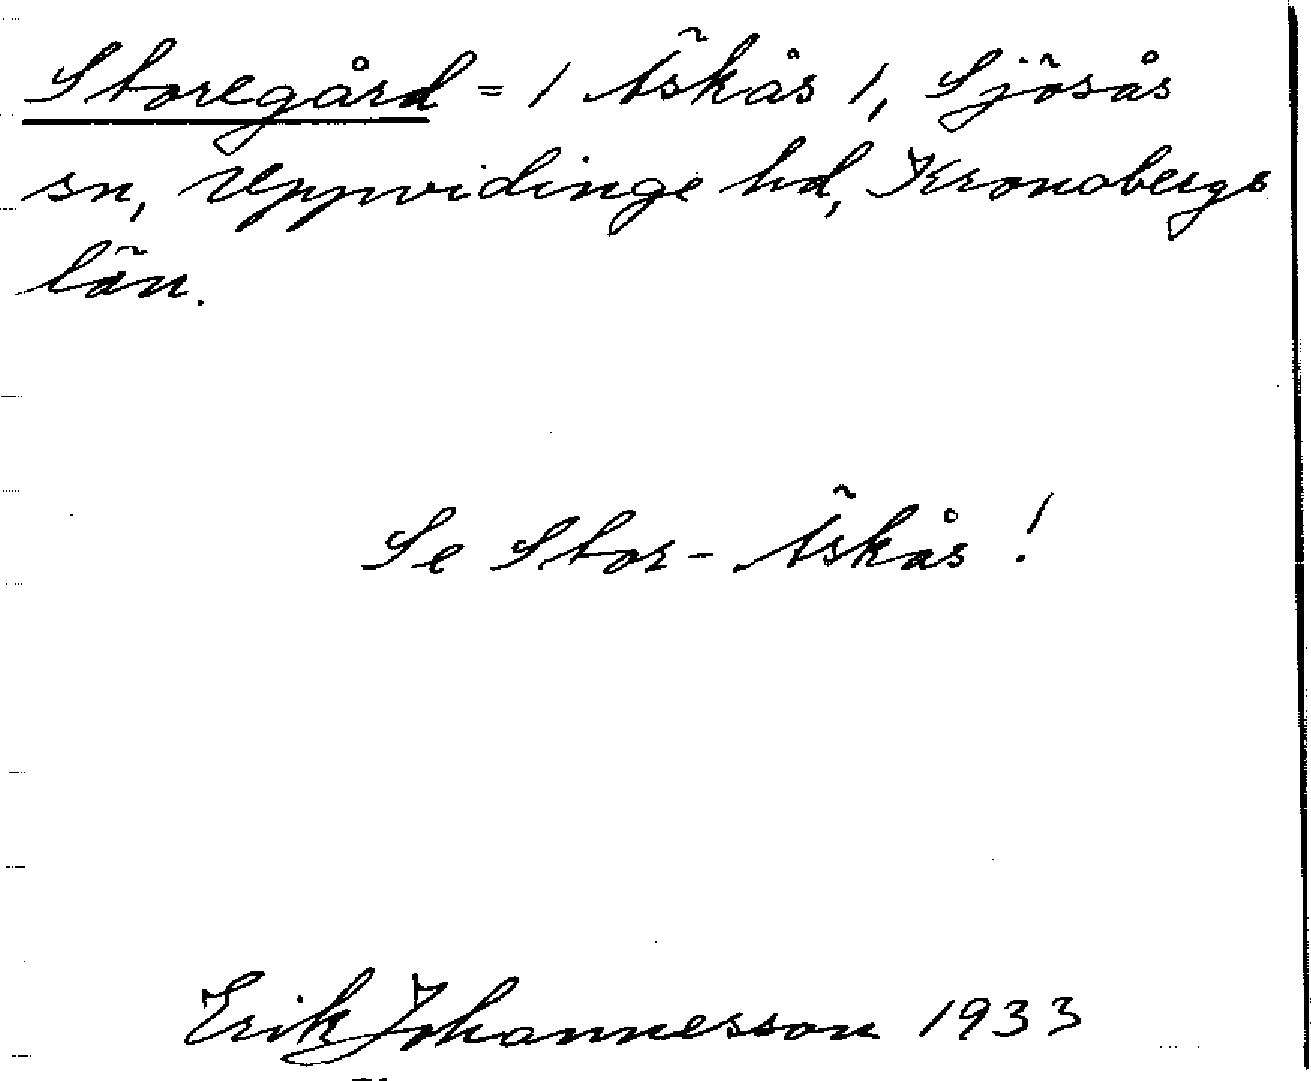 Storegård = 1 Äskås 1, Sjösås
sn, Uppvidinge hd, Kronobergs
län.
Se Stor-Äskås!
Erik Johannesson 1933